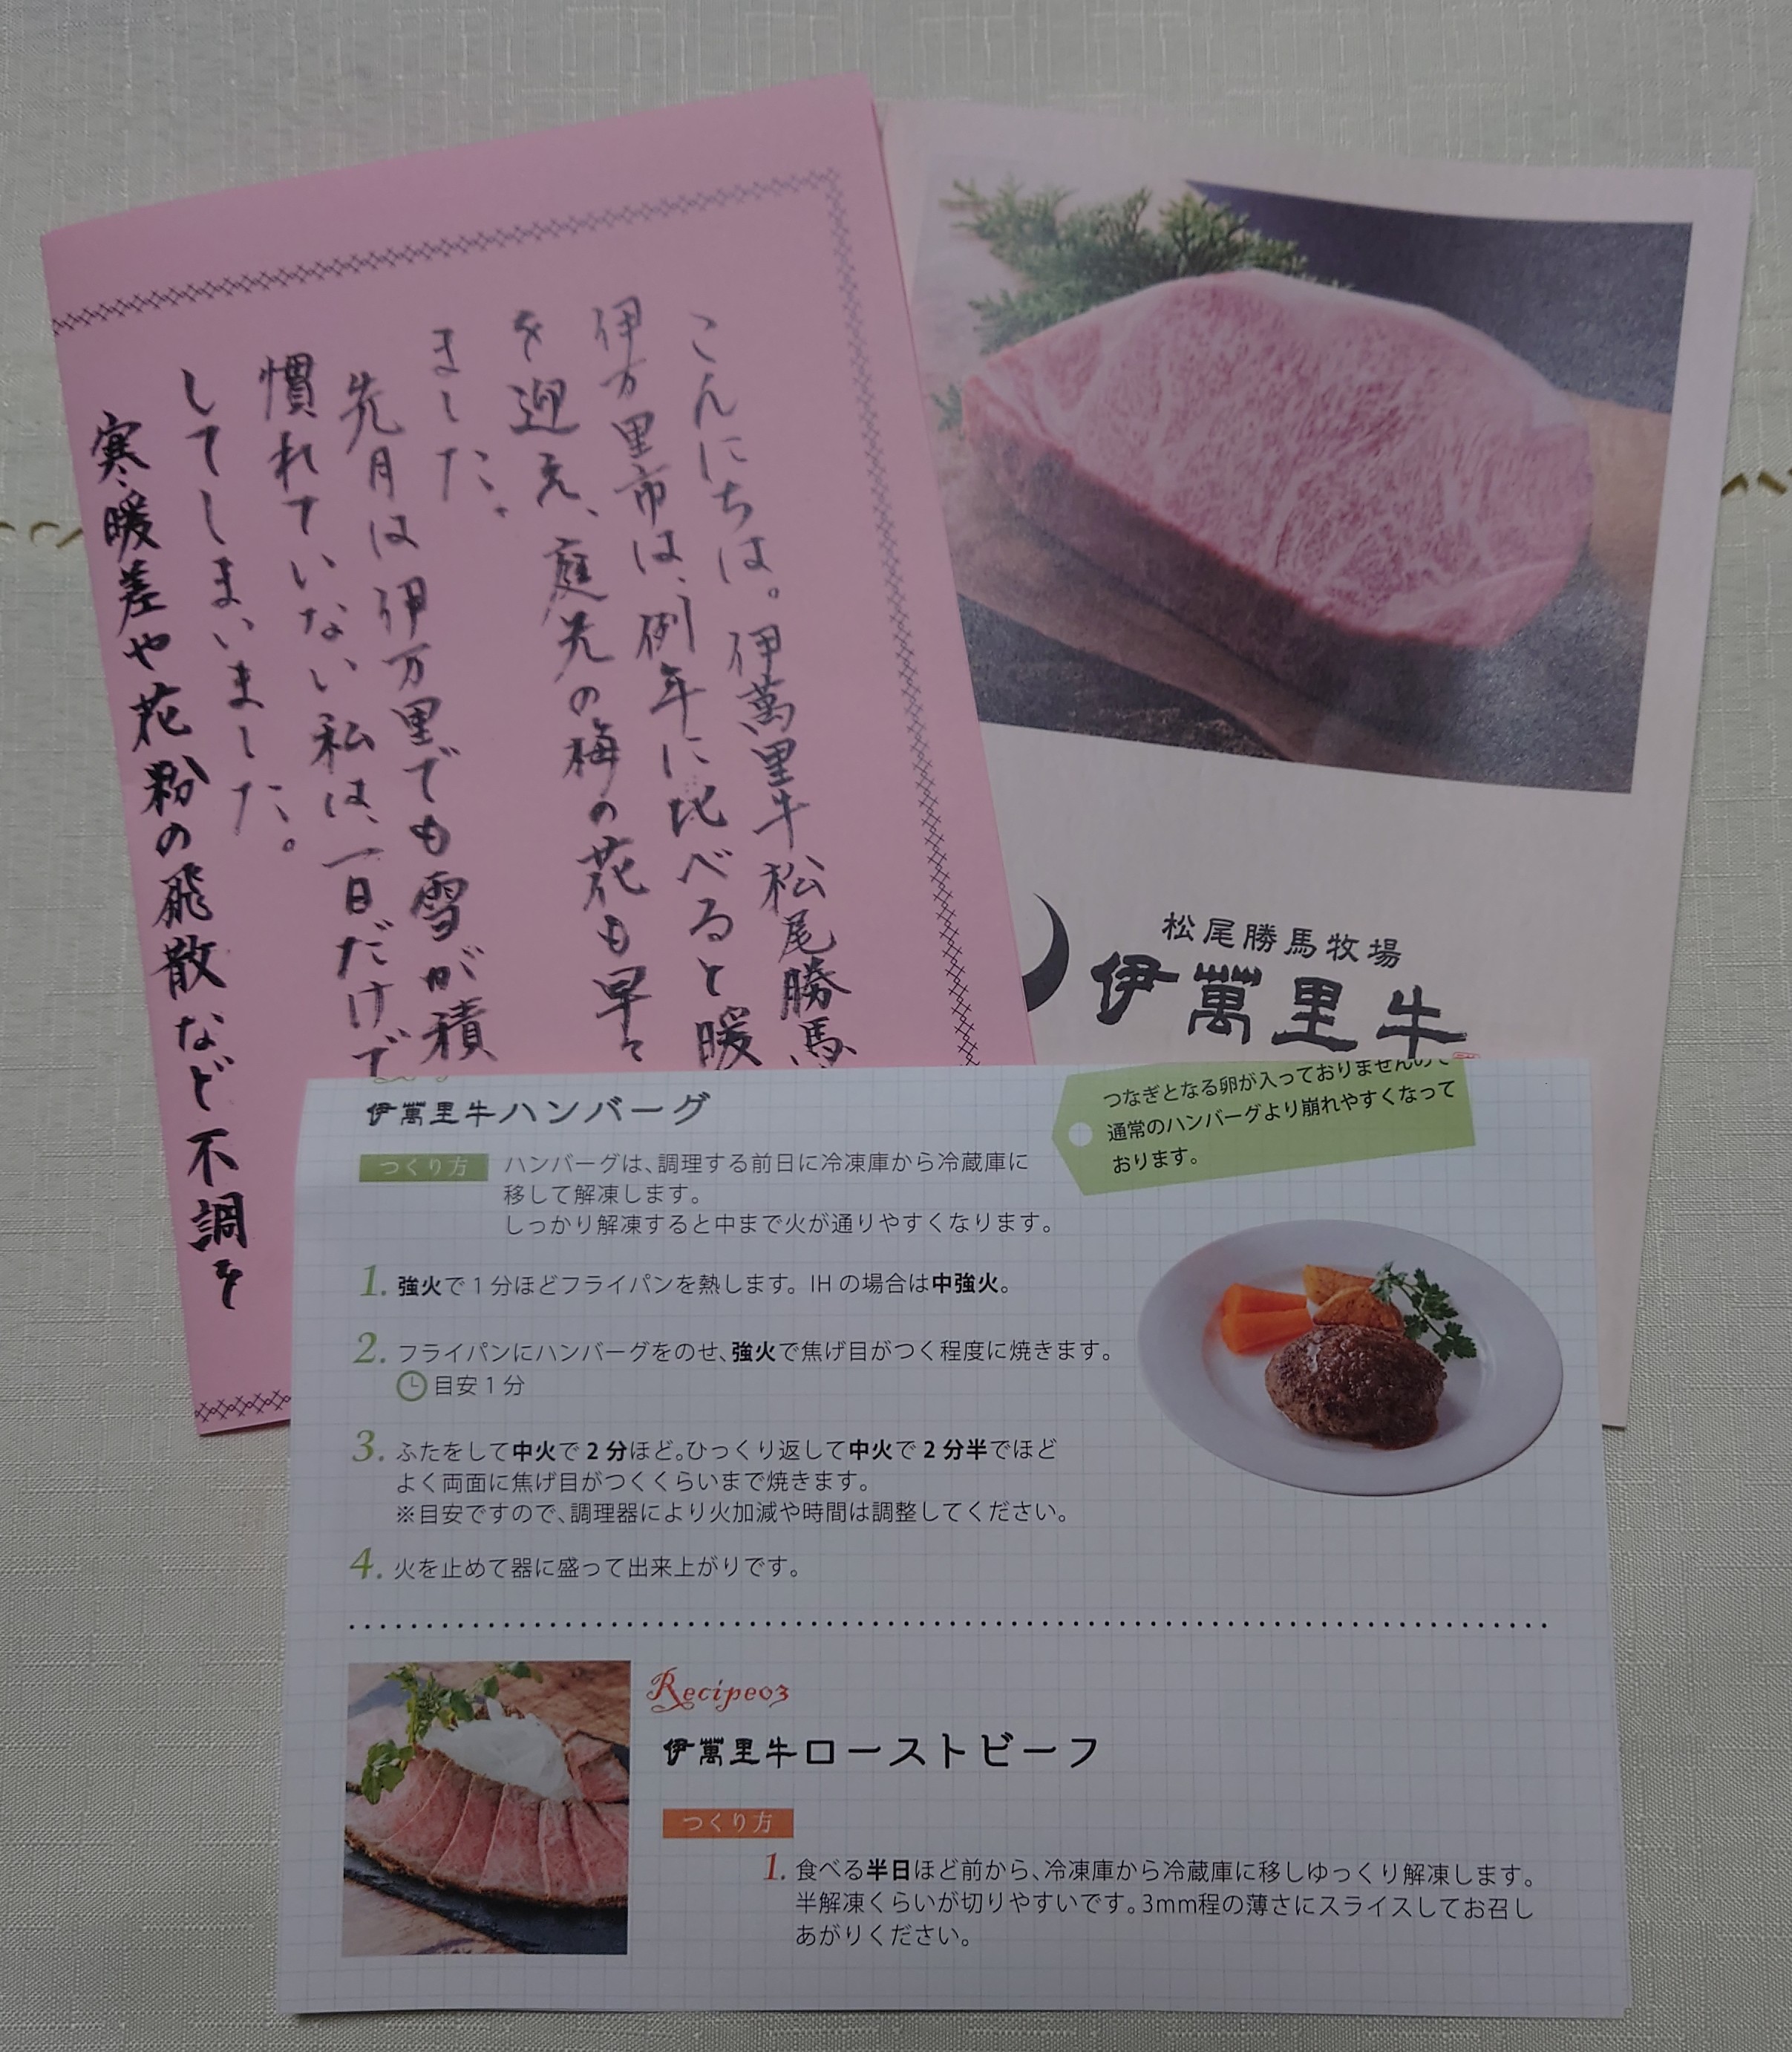 こんにちは。伊萬里牛松尾勝馬
伊万里市は、例年に比べると暖
を迎え、庭先の梅の花も早々
ました。
先月は伊万里でも雪が積
慣れていない私は、一日だけで
してしまいました。
寒暖差や花粉の飛散など不調を
松尾勝馬牧場
伊萬里牛
伊萬里牛ハンバーグ
つなぎとなる卵が入っておりませんので
通常のハンバーグより崩れやすくなって
おります。
つくり方
ハンバーグは、調理する前日に冷凍庫から冷蔵庫に
移して解凍します。
しっかり解凍すると中まで火が通りやすくなります。
1. 強火で1分ほどフライパンを熱します。IHの場合は中強火。
2. フライパンにハンバーグをのせ、強火で焦げ目がつく程度に焼きます。
目安1分
3. ふたをして中火で2分ほど。ひっくり返して中火で2分半でほど
よく両面に焦げ目がつくくらいまで焼きます。
※目安ですので、調理器により火加減や時間は調整してください。
4. 火を止めて器に盛って出来上がりです。
Recipe03
伊萬里牛ローストビーフ
つくり方
1. 食べる半日ほど前から、冷凍庫から冷蔵庫に移しゆっくり解凍します。
半解凍くらいが切りやすいです。3mm程の薄さにスライスしてお召し
あがりください。